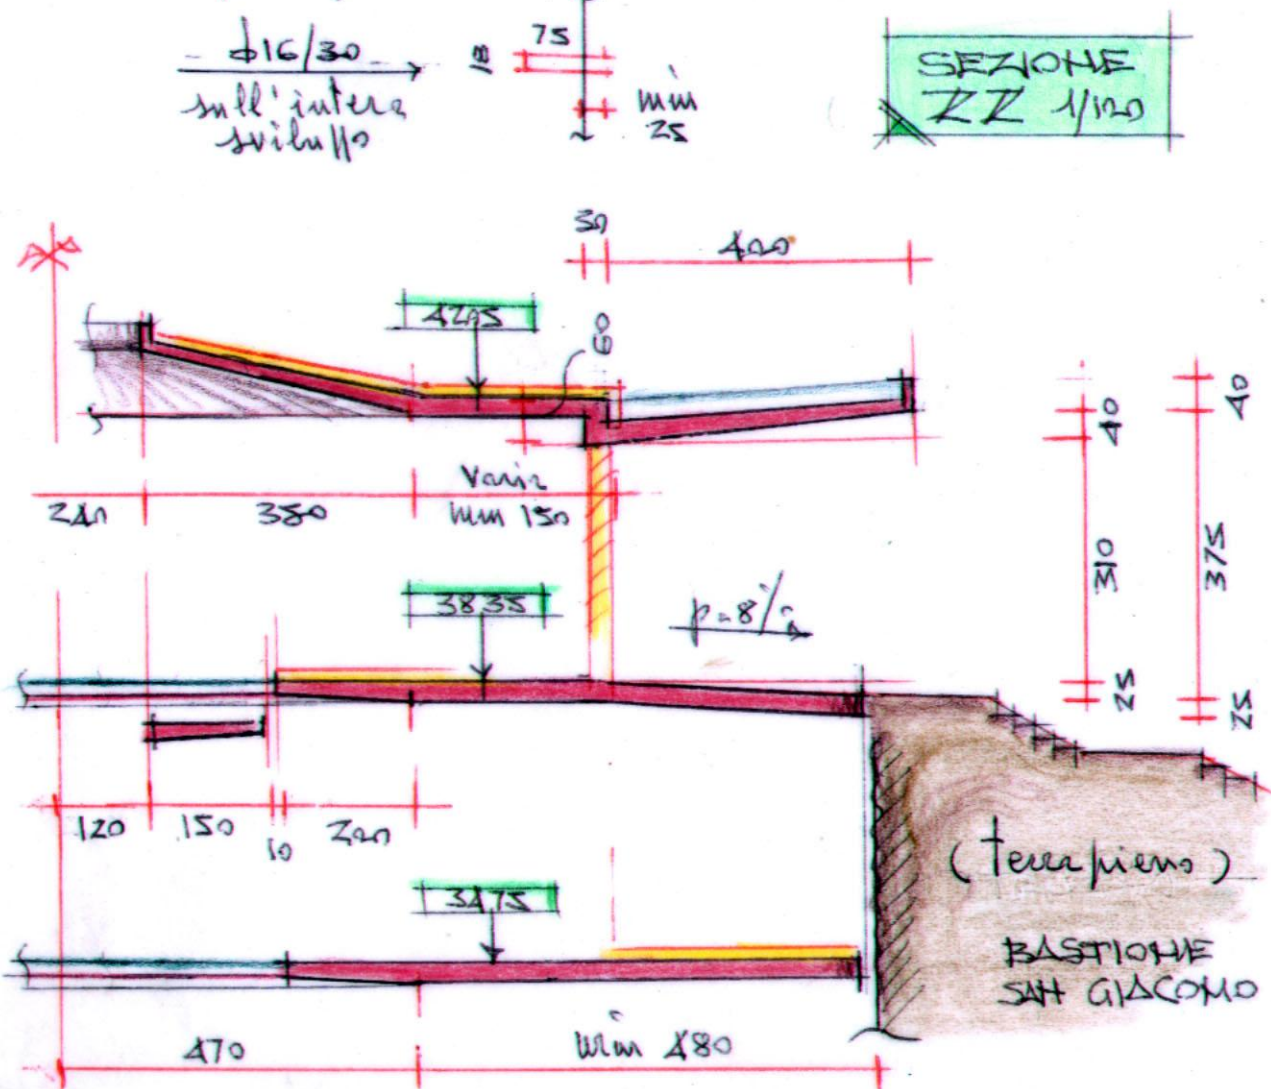 ɸ16/30
sull'intera
sviluppo
18
75
min
25
SEZIONE
ZZ 1/120
30
400
4205
60
40
40
240
350
varia
min 150
310
375
3835
p=8%
25
25
120
150
10
200
3475
(terrapieno)
BASTIONE
SAN GIACOMO
470
min 480